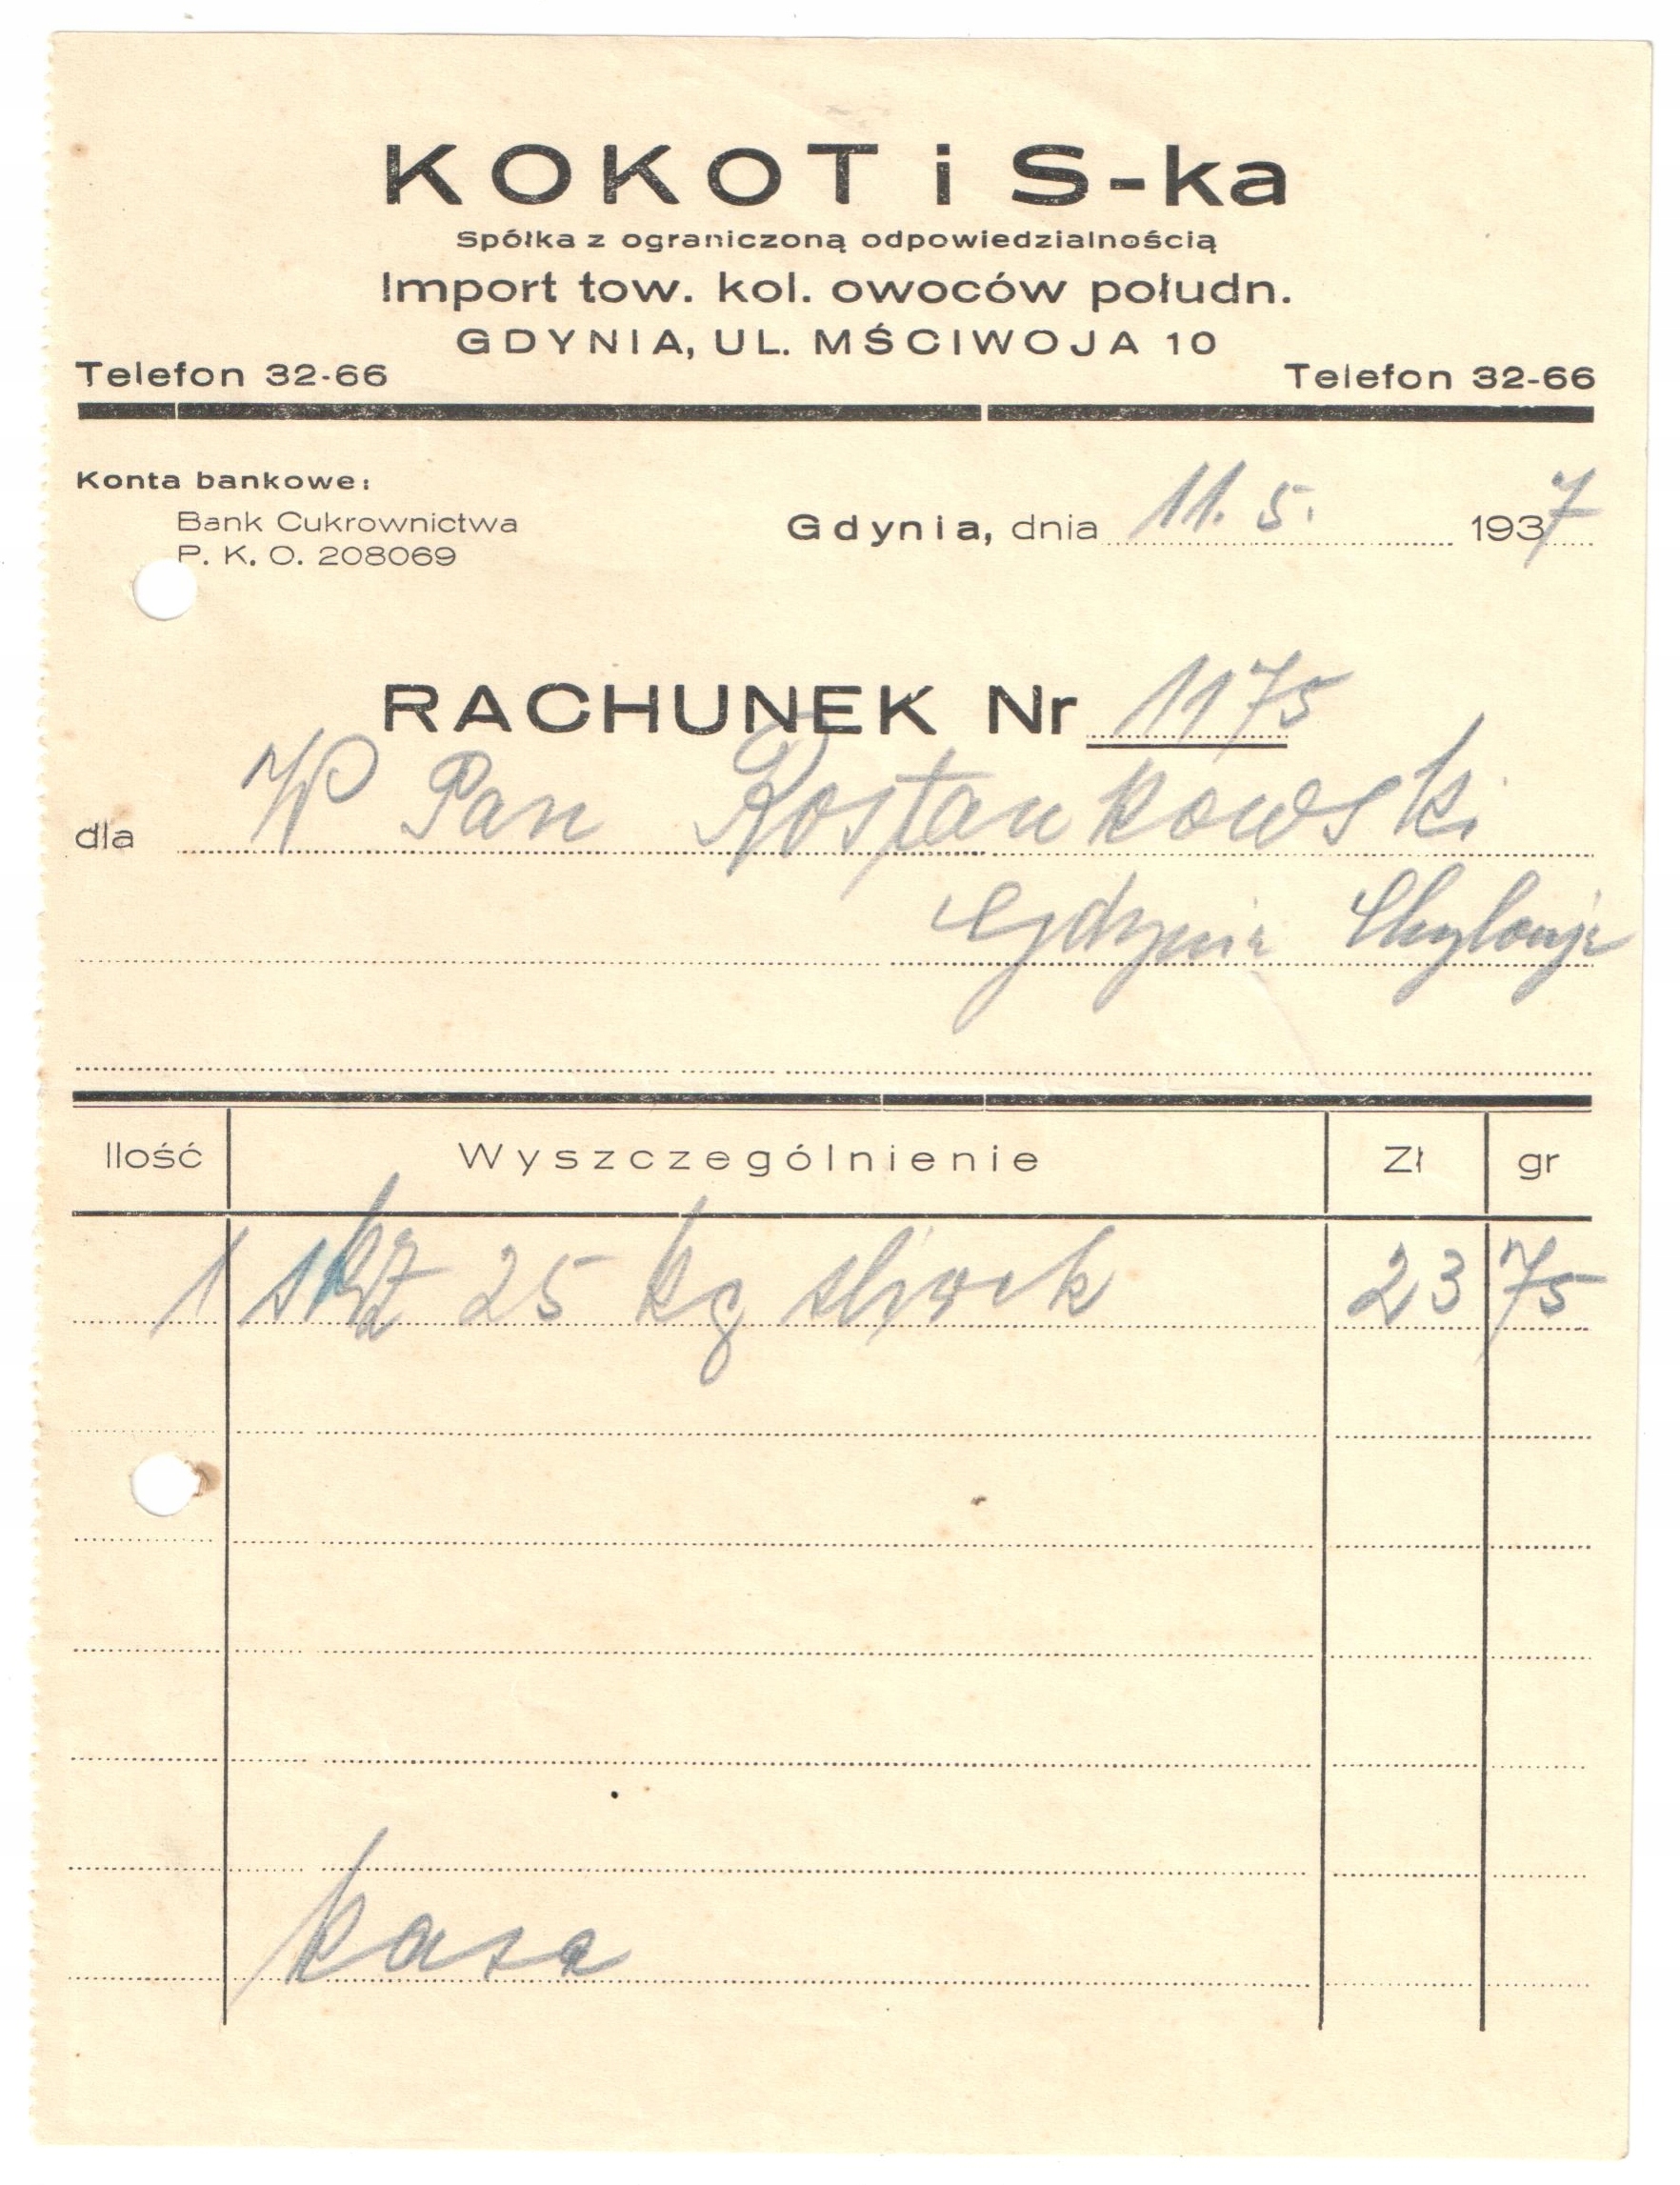 KOKOT i S-ka
Spółka z ograniczoną odpowiedzialnością
Import tow. kol. owoców połudn.
GDYNIA, UL. MŚCIWOJA 10
Telefon 32-66 Telefon 32-66
Konta bankowe:
Bank Cukrownictwa
P. K. O. 208069
Gdynia, dnia 11. 5. 1937
RACHUNEK Nr 1175
dla WP Pan Rostankowski
Gdynia Chylonja
Ilość Wyszczególnienie Zł gr
1 skrz 25 kg śliwek 23 75
kasa